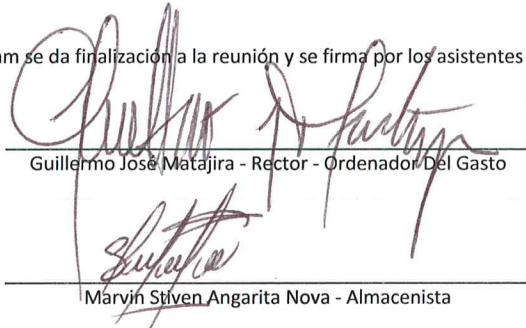 am se da finalización a la reunión y se firma por los asistentes
Guillermo José Matajira - Rector - Ordenador Del Gasto
Marvin Stiven Angarita Nova - Almacenista